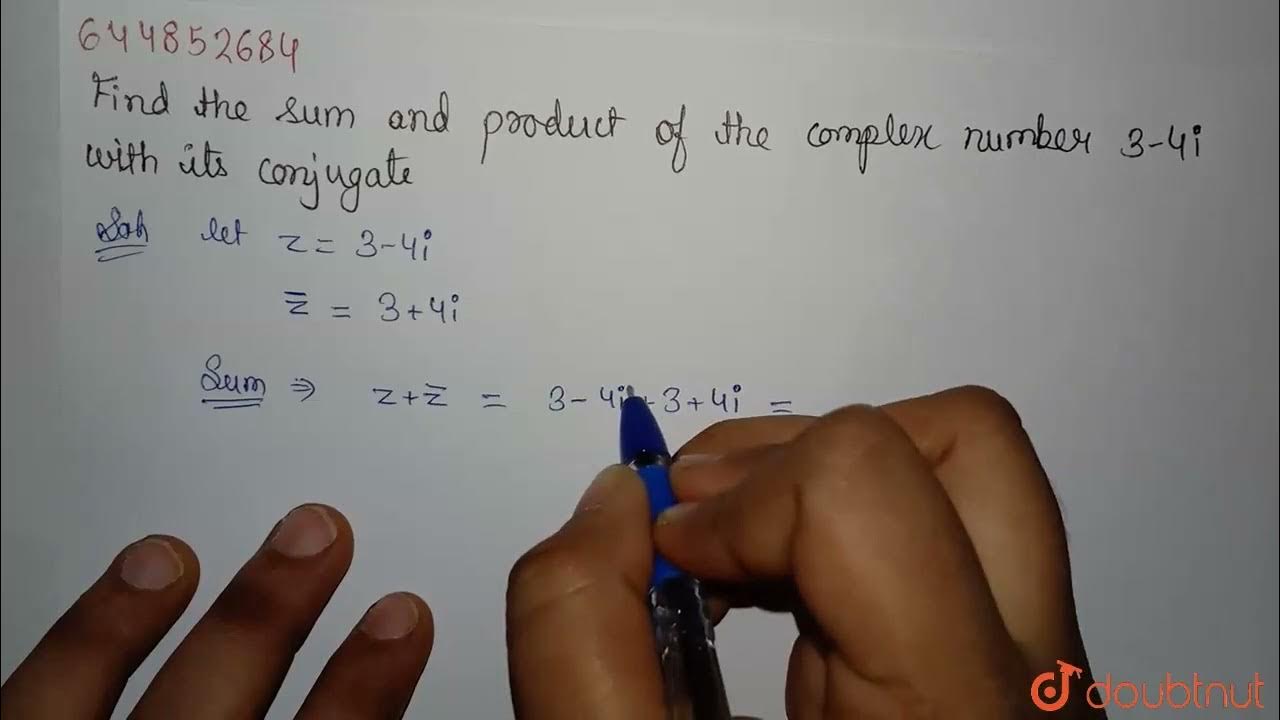 644852684
Find the sum and product of the complex number 3-4i
with its conjugate
Soln let z = 3-4i
z̅ = 3+4i
Sum ⇒ z+z̅ = 3-4i+3+4i =
doubtnut